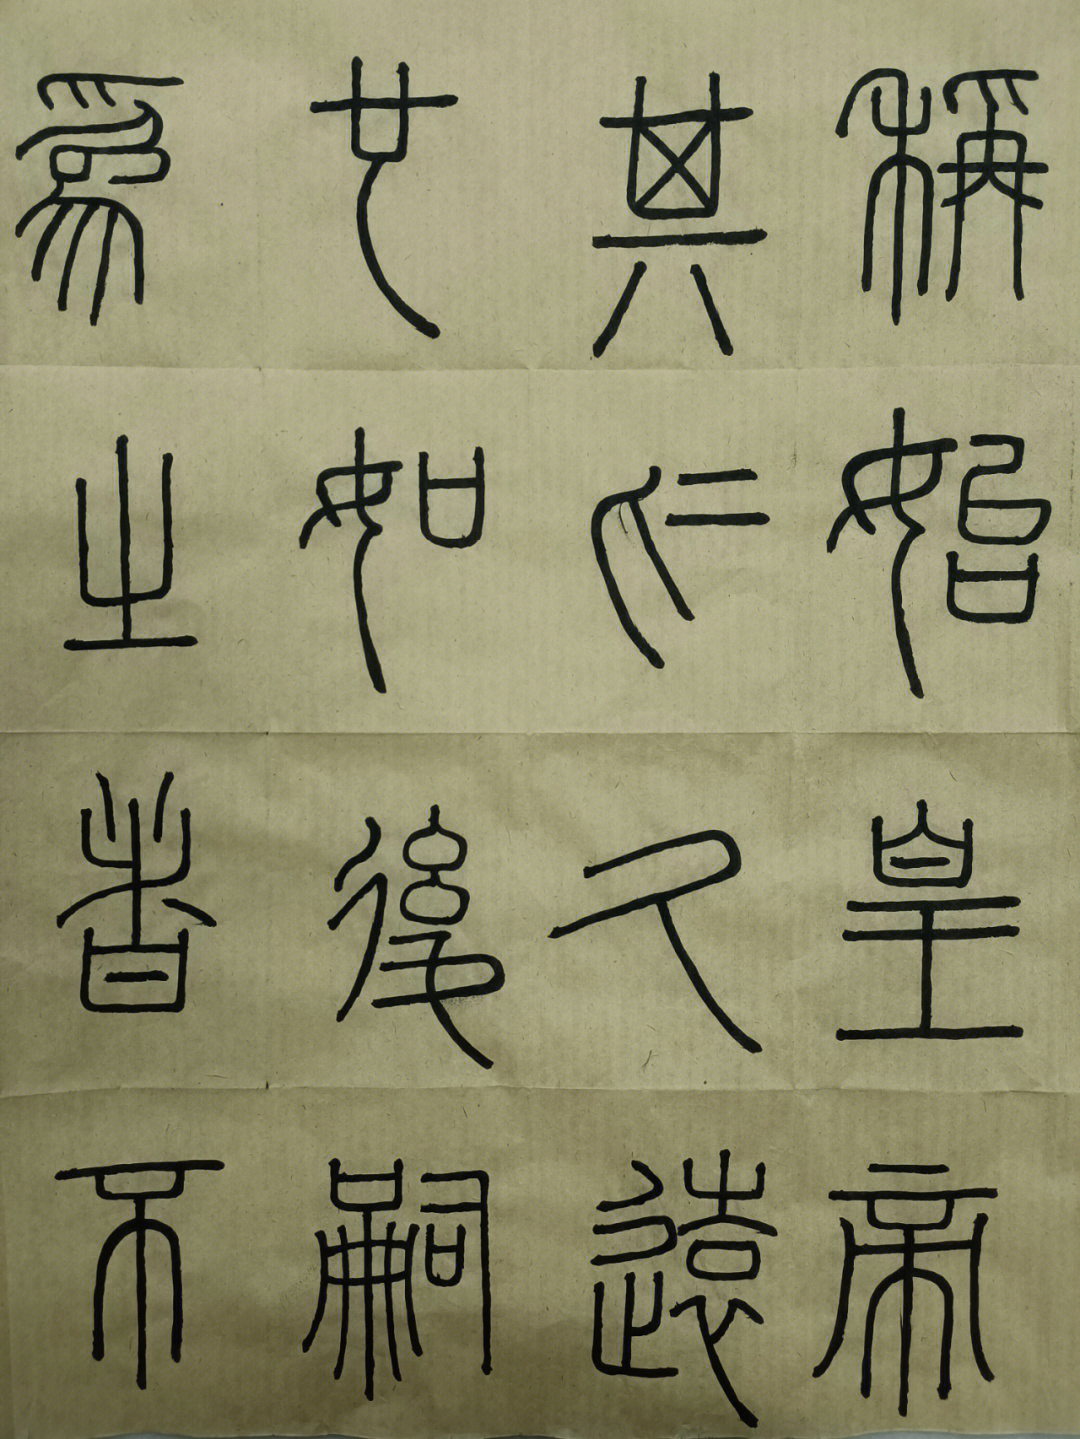 稱始皇帝
其於久遠
也如後嗣
爲之者不